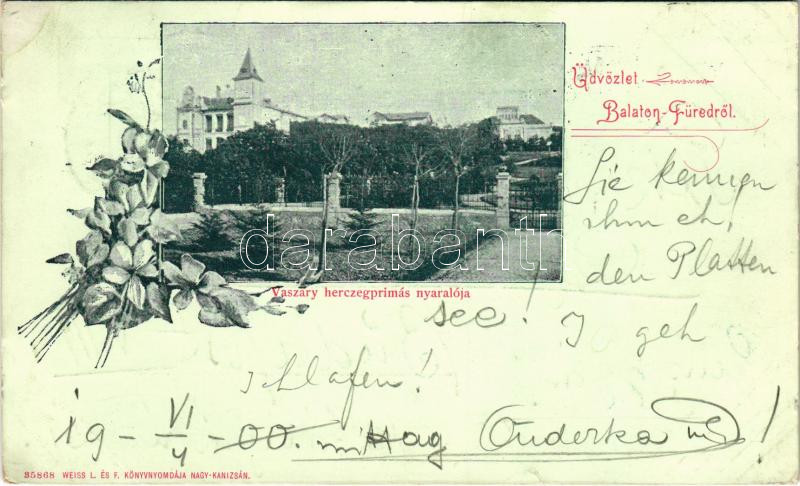 Üdvözlet
Balaton-Füredről.
Sie kennen
ihm eh,
den Platten
see! I geh
schlafen!
19 - VI/4 - 00. mittag Onderka
darabanth
Vaszary herczegprimás nyaralója
35868 WEISS L. ÉS F. KÖNYVNYOMDÁJA NAGY-KANIZSÁN.